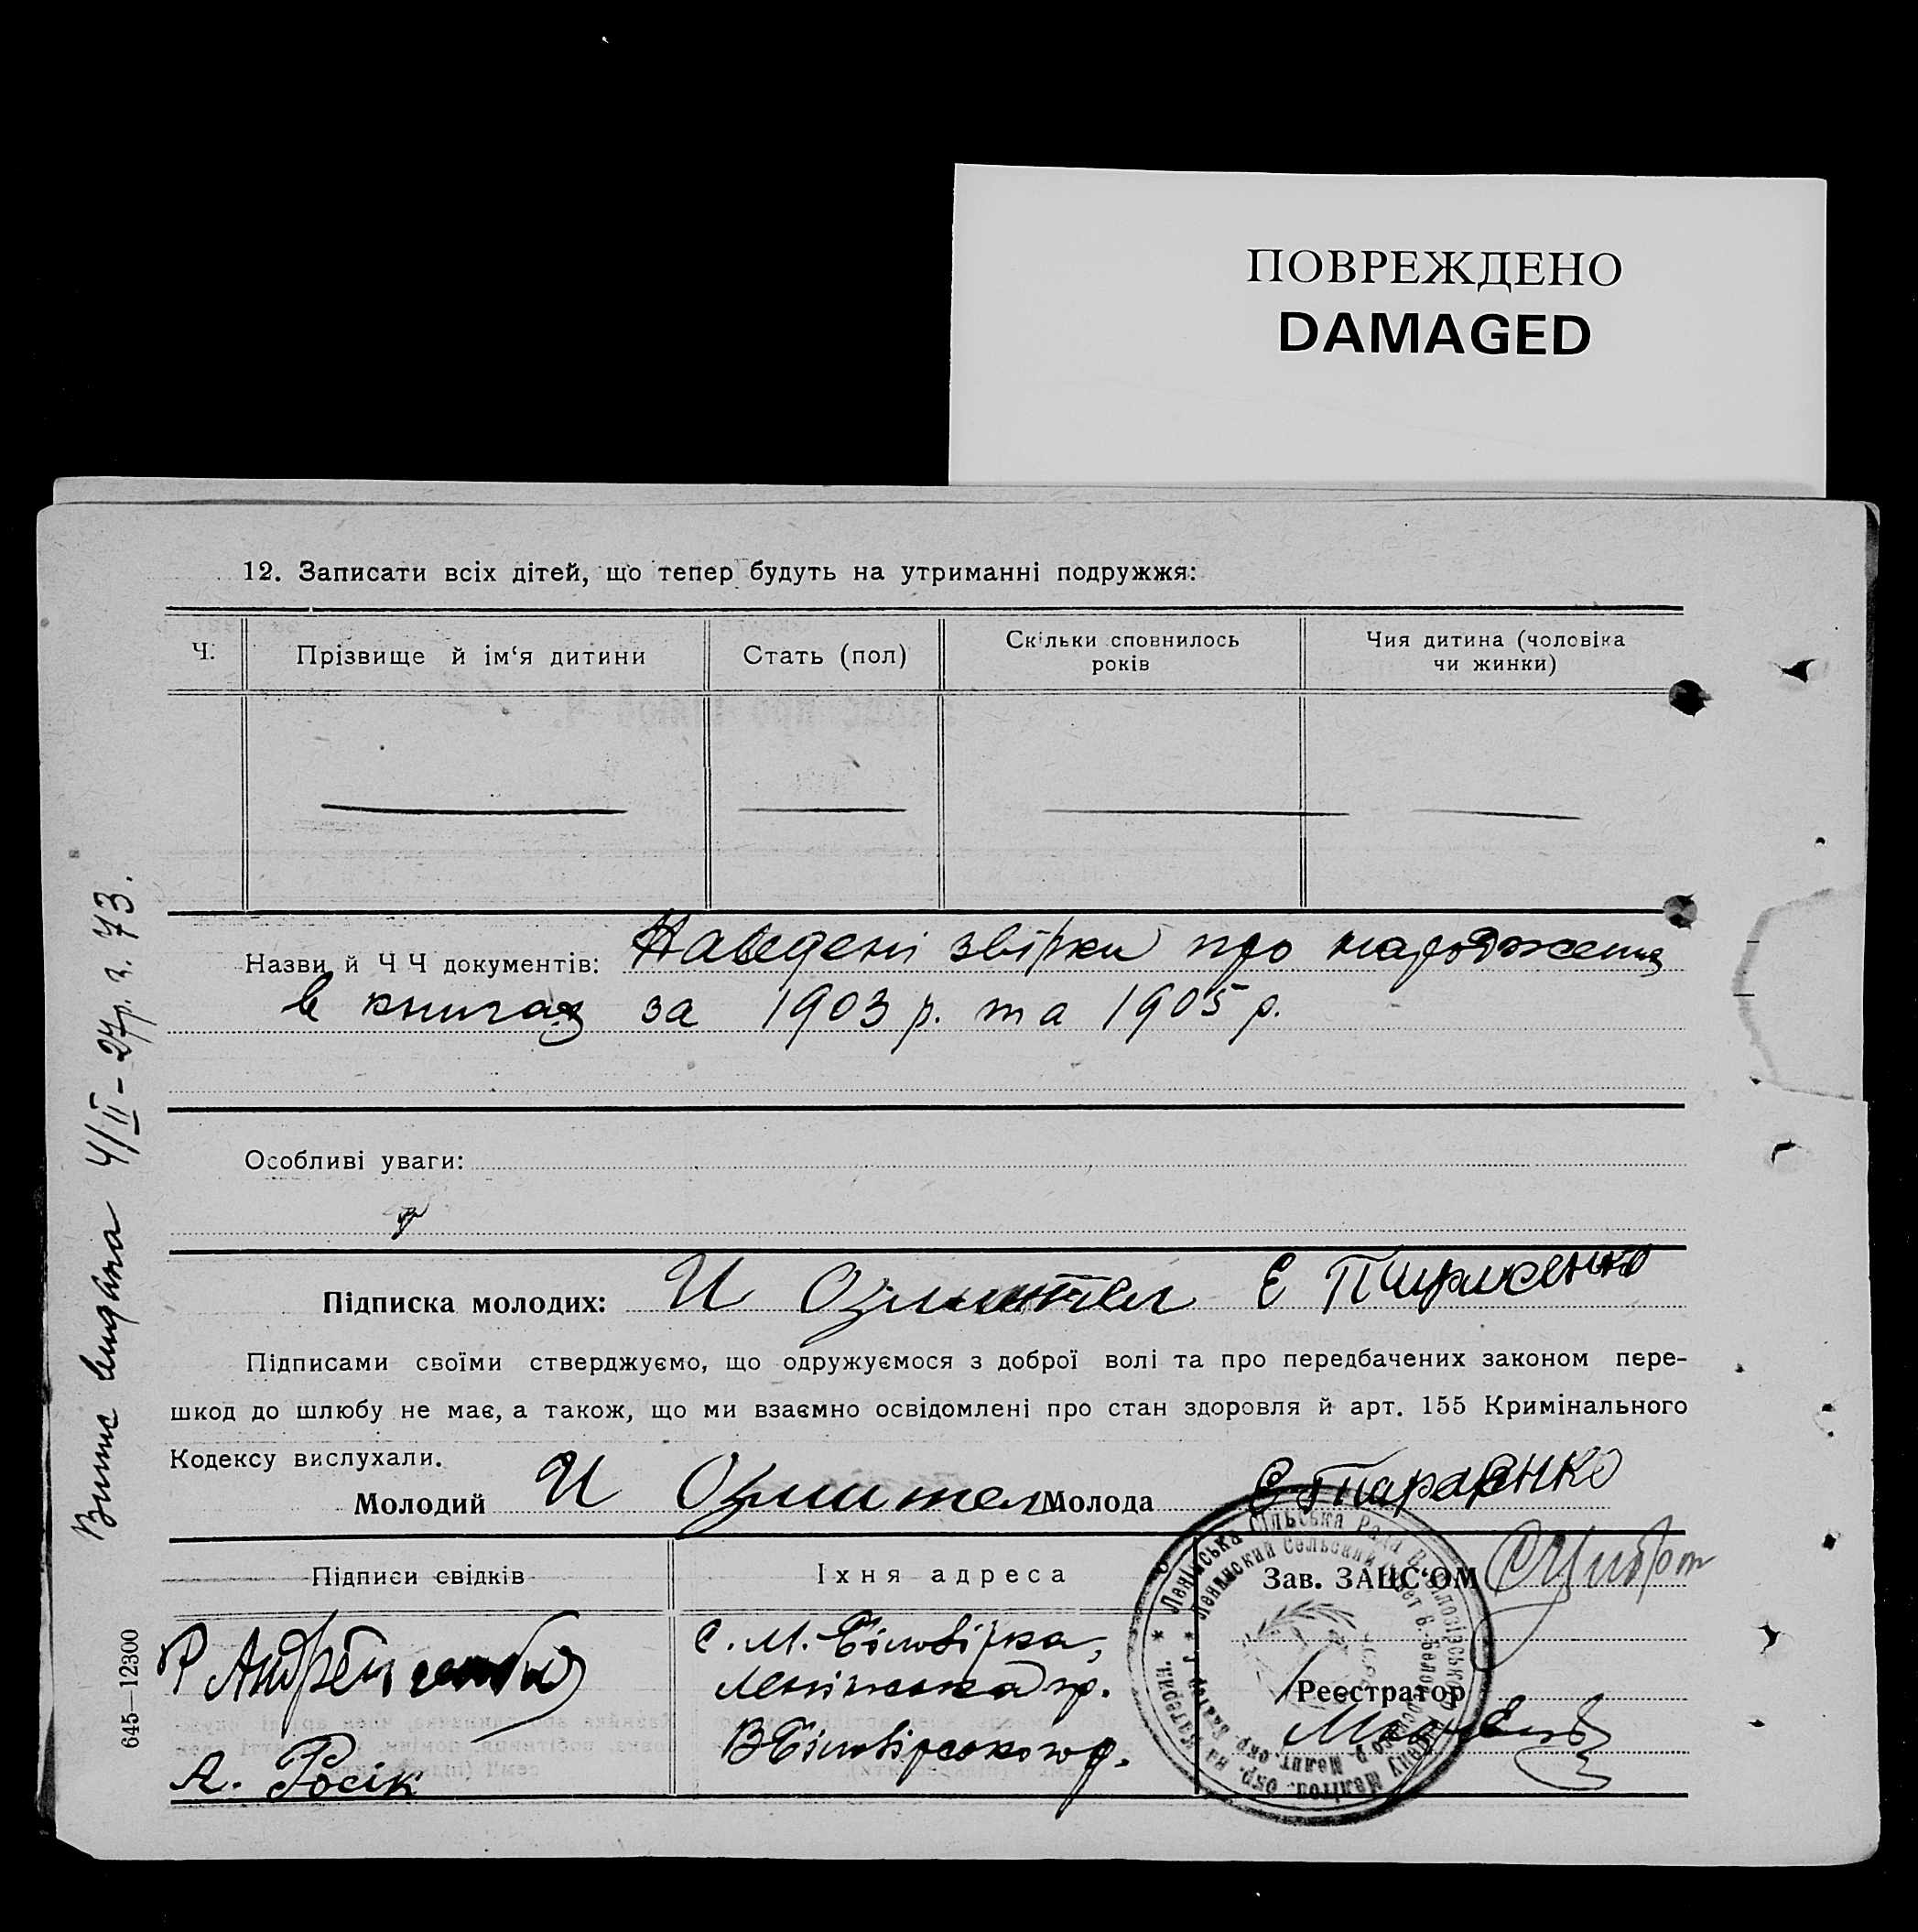 ПОВРЕЖДЕНО
DAMAGED
12. Записати всіх дітей, що тепер будуть на утриманні подружжя:
Ч. Прізвище й ім‘я дитини Стать (пол) Скільки сповнилось років Чия дитина (чоловіка чи жинки)
Назви й Ч Ч документів: Наведені звірки про народження
в книгах за 1903 р. та 1905 р.
Особливі уваги:
Підписка молодих: И Е
Підписами своїми стверджуємо, що одружуємося з доброї волі та про передбачених законом пере-
шкод до шлюбу не має, а також, що ми взаємно освідомлені про стан здоровля й арт. 155 Кримінального
Кодексу вислухали.
Молодий И Молода Е
Підписи свідків Їхня адреса Зав. ЗАЦС‘ОМ
С. М. Білозірка,
Ленінська
Реєстратор
В Білозірського р.
А. Росік
Випис видана 4/II – 27р. з. 73.
645—12300
Ленінська Сільська Рада В.-Білозірського району Мелітоп. окр. на Катерин.
Ленинский Сельский Совет В.-Белозерского р. Мелит. окр.